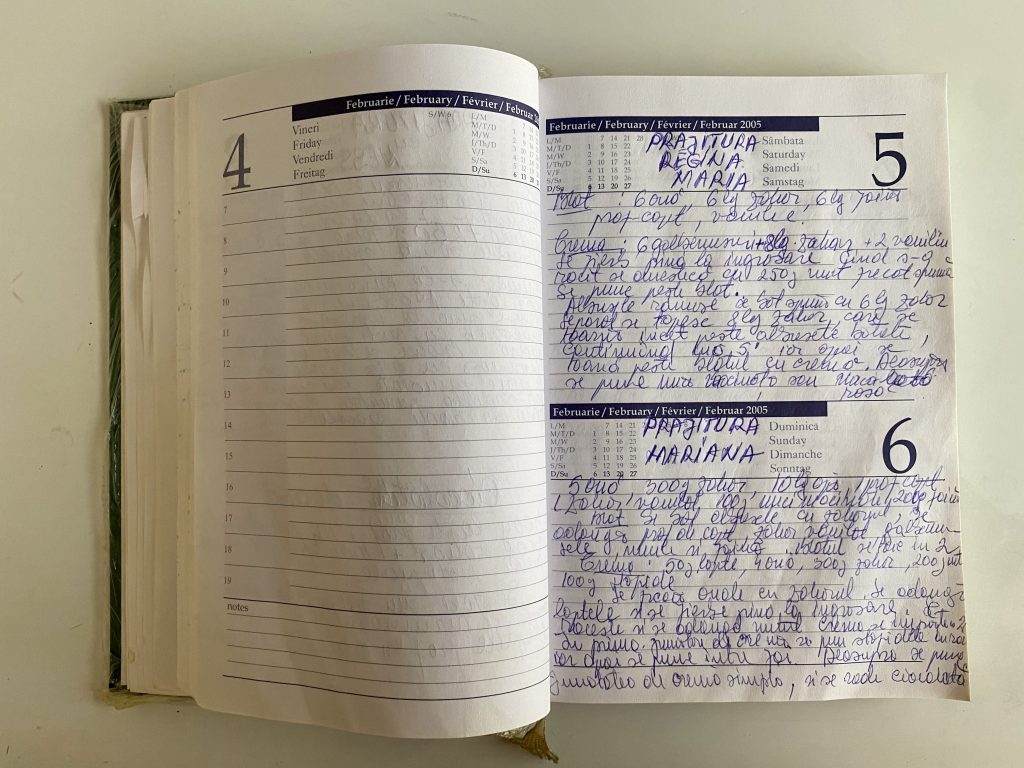 Februarie / February / Février / Februar
4
Vineri
Friday
Vendredi
Freitag
S/W 6
L/M
M/T/D
M/W
I/Th/D
V/F
S/Sa
D/Su
7
8
9
10
11
12
13
14
15
16
17
18
19
notes
Februarie / February / Février / Februar 2005
L/M 7 14 21 28
M/T/D 1 8 15 22
M/W 2 9 16 23
I/Th/D 3 10 17 24
V/F 4 11 18 25
S/Sa 5 12 19 26
D/Su 6 13 20 27
PRAJITURA
REGINA
MARIA
Sâmbata
Saturday
Samedi
Samstag
5
Blat : 6 ouă, 6 lg zahar, 6 lg faina
praf copt, vanilie.
Crema : 6 galbenusuri + 8 lg zahar + 2 vanilin
se fierb pina la ingrosare cind s-a
racit se amesteca cu 250 g unt frecat spuma
si pune peste blat.
Albusule ramase se bat spuma cu 6 lg zahar
separat se topesc 8 lg zahar care se
toarna incet peste albusele batute,
continuind inca 5' iar apoi se
toarna peste blatul cu crema. Deasupra
se pune nuca macinata sau ciocolata
rasa
Februarie / February / Février / Februar 2005
L/M 7 14 21
M/T/D 1 8 15 22
M/W 2 9 16 23
I/Th/D 3 10 17 24
V/F 4 11 18 25
S/Sa 5 12 19 26
D/Su 6 13 20 27
PRAJITURA
MARIANA
Duminica
Sunday
Dimanche
Sonntag
6
5 oua, 300 g zahar, praf copt
zahar vanilat, 100 g nuci macinate, 200 g faina
Blat se bat albusele cu zaharul, se
adauga praf de copt, zahar vanilat galbenu-
sele, nucile si faina. Blatul se taie in 2
Crema : 50 g lapte, 4 oua, 300 g zahar, 200 g unt
100 g stafide
Se freaca ouale cu zaharul se adauga
laptele si se fierbe pina la ingrosare. Se
raceste si se adauga untul crema se imparte in 2
In prima jumatate de crema se pun stafidele
iar apoi se pune intre foi. Deasupra se pune
jumatatea de crema simpla, si se rade ciocolată